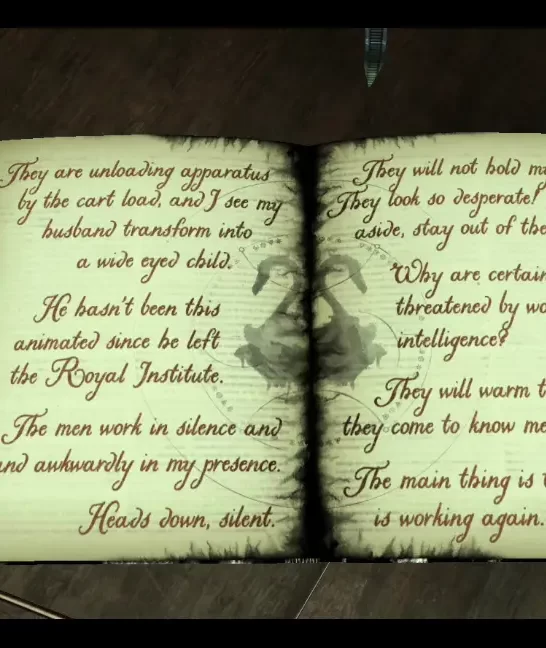 They are unloading apparatus
by the cart load, and I see my
husband transform into
a wide eyed child.
He hasn't been this
animated since he left
the Royal Institute.
The men work in silence and
and awkwardly in my presence.
Heads down, silent.
They will not hold
They look so desperate!
aside, stay out of the
Why are certain
threatened by
intelligence?
They will warm
they come to know me
The main thing is
is working again.